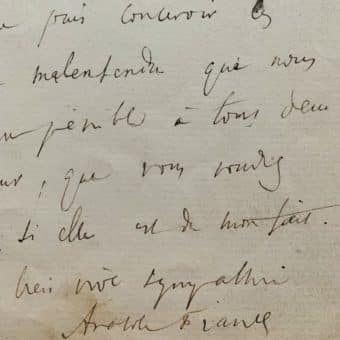 puis concevoir ce
malentendu que nous
pénible à tous deux
, que vous voudrez
si elle est de mon fait.
bien vive sympathie
Anatole France